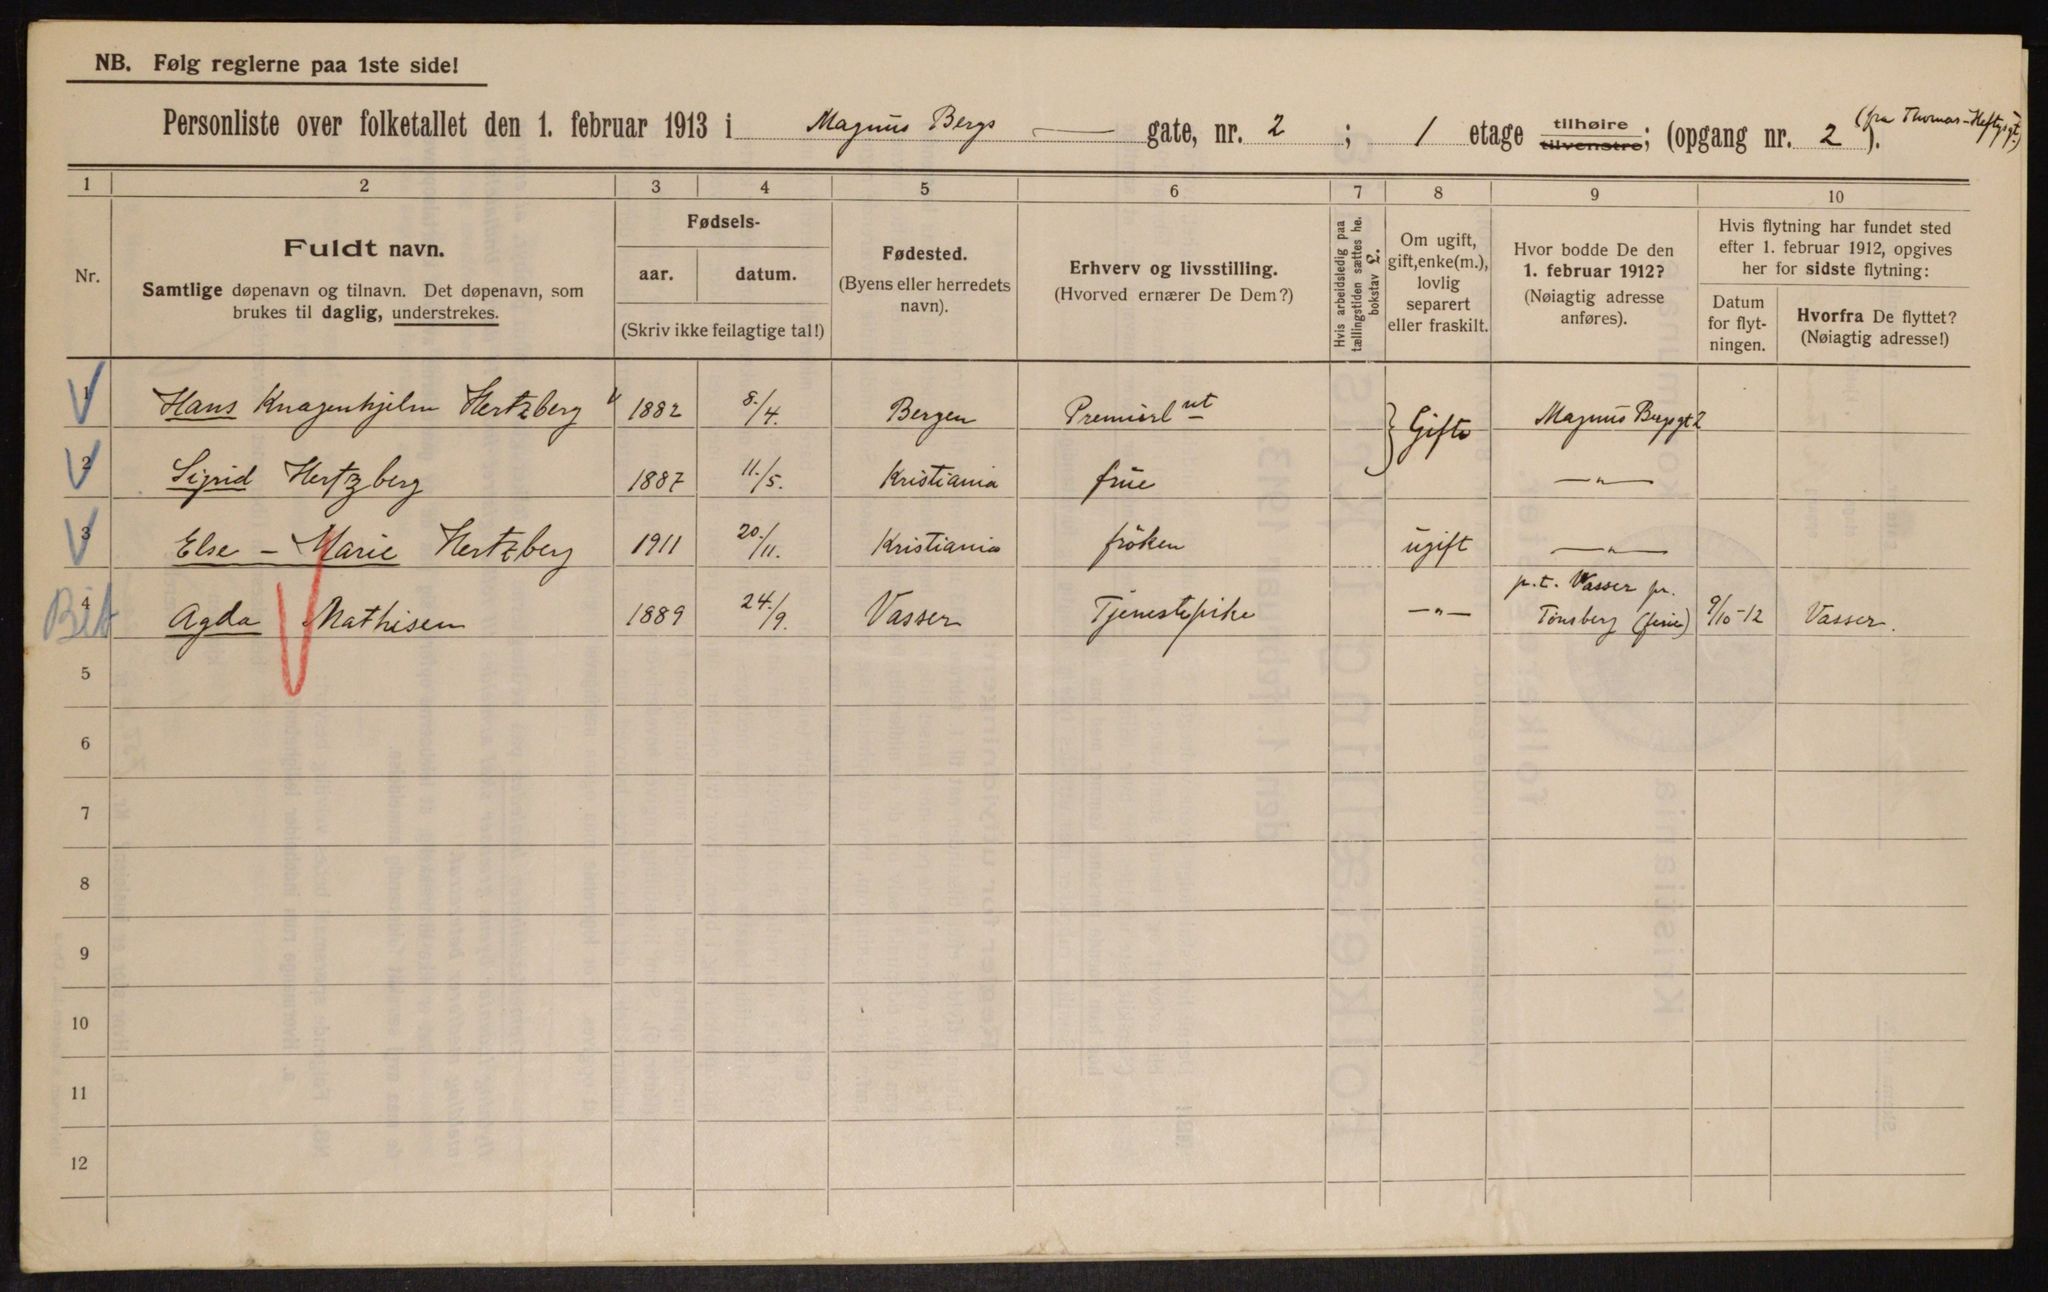 NB. Følg reglerne paa 1ste side!
Personliste over folketallet den 1. februar 1913 i Magnus Bergs gate, nr. 2 ; 1 etage tilhøire tilvenstre; (opgang nr. 2 ). (fra Thomas-Heftysgt.)
1 2 3 4 5 6 7 8 9 10
Nr.
Fuldt navn.
Samtlige døpenavn og tilnavn. Det døpenavn, som
brukes til daglig, understrekes.
Fødsels-
aar. datum.
(Skriv ikke feilagtige tal!)
Fødested.
(Byens eller herredets
navn).
Erhverv og livsstilling.
(Hvorved ernærer De Dem?)
Hvis arbeidsledig paa
tællingstiden sættes he.
bokstav L.
Om ugift,
gift, enke(m.),
lovlig
separert
eller fraskilt.
Hvor bodde De den
1. februar 1912?
(Nøiagtig adresse
anføres).
Hvis flytning har fundet sted
efter 1. februar 1912, opgives
her for sidste flytning:
Datum
for flyt-
ningen.
Hvorfra De flyttet?
(Nøiagtig adresse!)
1 Hans Knagenhjelm Hertzberg 1882 8./4. Bergen Premierlnt Gifte Magnus Bergsgt 2
2 Sigrid Hertzberg 1887 11./5. Kristiania frue —„—
3 Else - Marie Hertzberg 1911 20./11. Kristiania frøken ugift —„—
Bit 4 Agda Mathisen 1889 24./9. Vasser Tjenestepike —„— p.t. Vasser pr. Tønsberg (ferie) 9/10-12 Vasser.
5
6
7
8
9
10
11
12